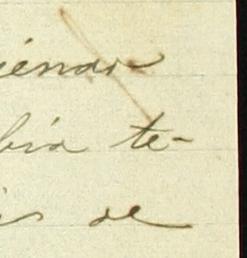 iendo
bía te-
is de